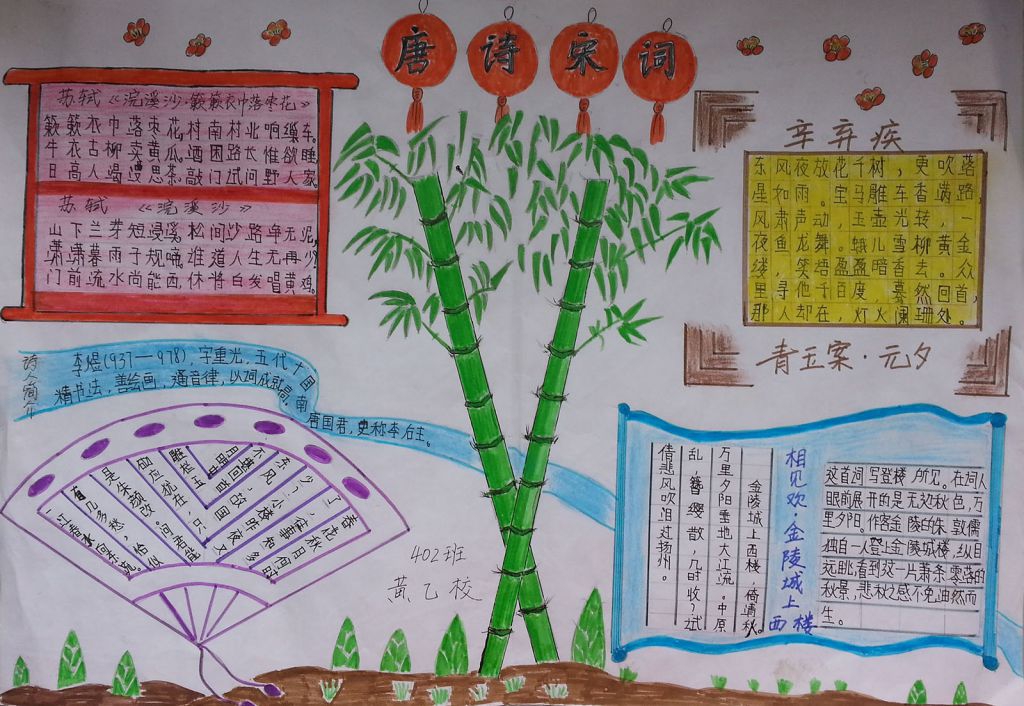 唐诗宋词
苏轼《浣溪沙·簌簌衣巾落枣花》
簌簌衣巾落枣花村南村北响缫车。
牛衣古柳卖黄瓜酒困路长惟欲睡
日高人渴漫思茶敲门试问野人家
苏轼 《浣溪沙》
山下兰芽短浸溪松间沙路净无泥,
萧萧暮雨子规啼谁道人生无再少
门前流水尚能西休将白发唱黄鸡。
辛弃疾
东风夜放花千树,更吹落
星如雨。宝马雕车香满路,
风肃声动,玉壶光转,一
夜鱼龙舞。蛾儿雪柳黄金
缕,笑语盈盈暗香去。众
里寻他千百度,蓦然回首,
那人却在,灯火阑珊处。
青玉案·元夕
诗人简介
李煜(937—978),字重光,五代十国
精书法,善绘画,通音律,以词成就高,南
唐国君,史称李后主。
春花秋月何时
了,往事知多
少?小楼昨夜又
东风,故国
不堪回首
月明中
雕栏玉
砌应犹在,只
是朱颜改。问君能
有几多愁,恰似
一江春水向东流。
402班
黄乙校
相见欢·金陵城上西楼
金陵城上西楼,倚清秋。
万里夕阳垂地大江流。中原
乱,簪缨散,几时收?试
倩悲风吹泪过扬州。
这首词写登楼所见。在词人
眼前展开的是无边秋色,万
里夕阳。作客金陵的朱敦儒
独自一人登上金陵城楼,纵目
远眺,看到这一片萧条零落的
秋景,悲秋之感不免油然而
生。